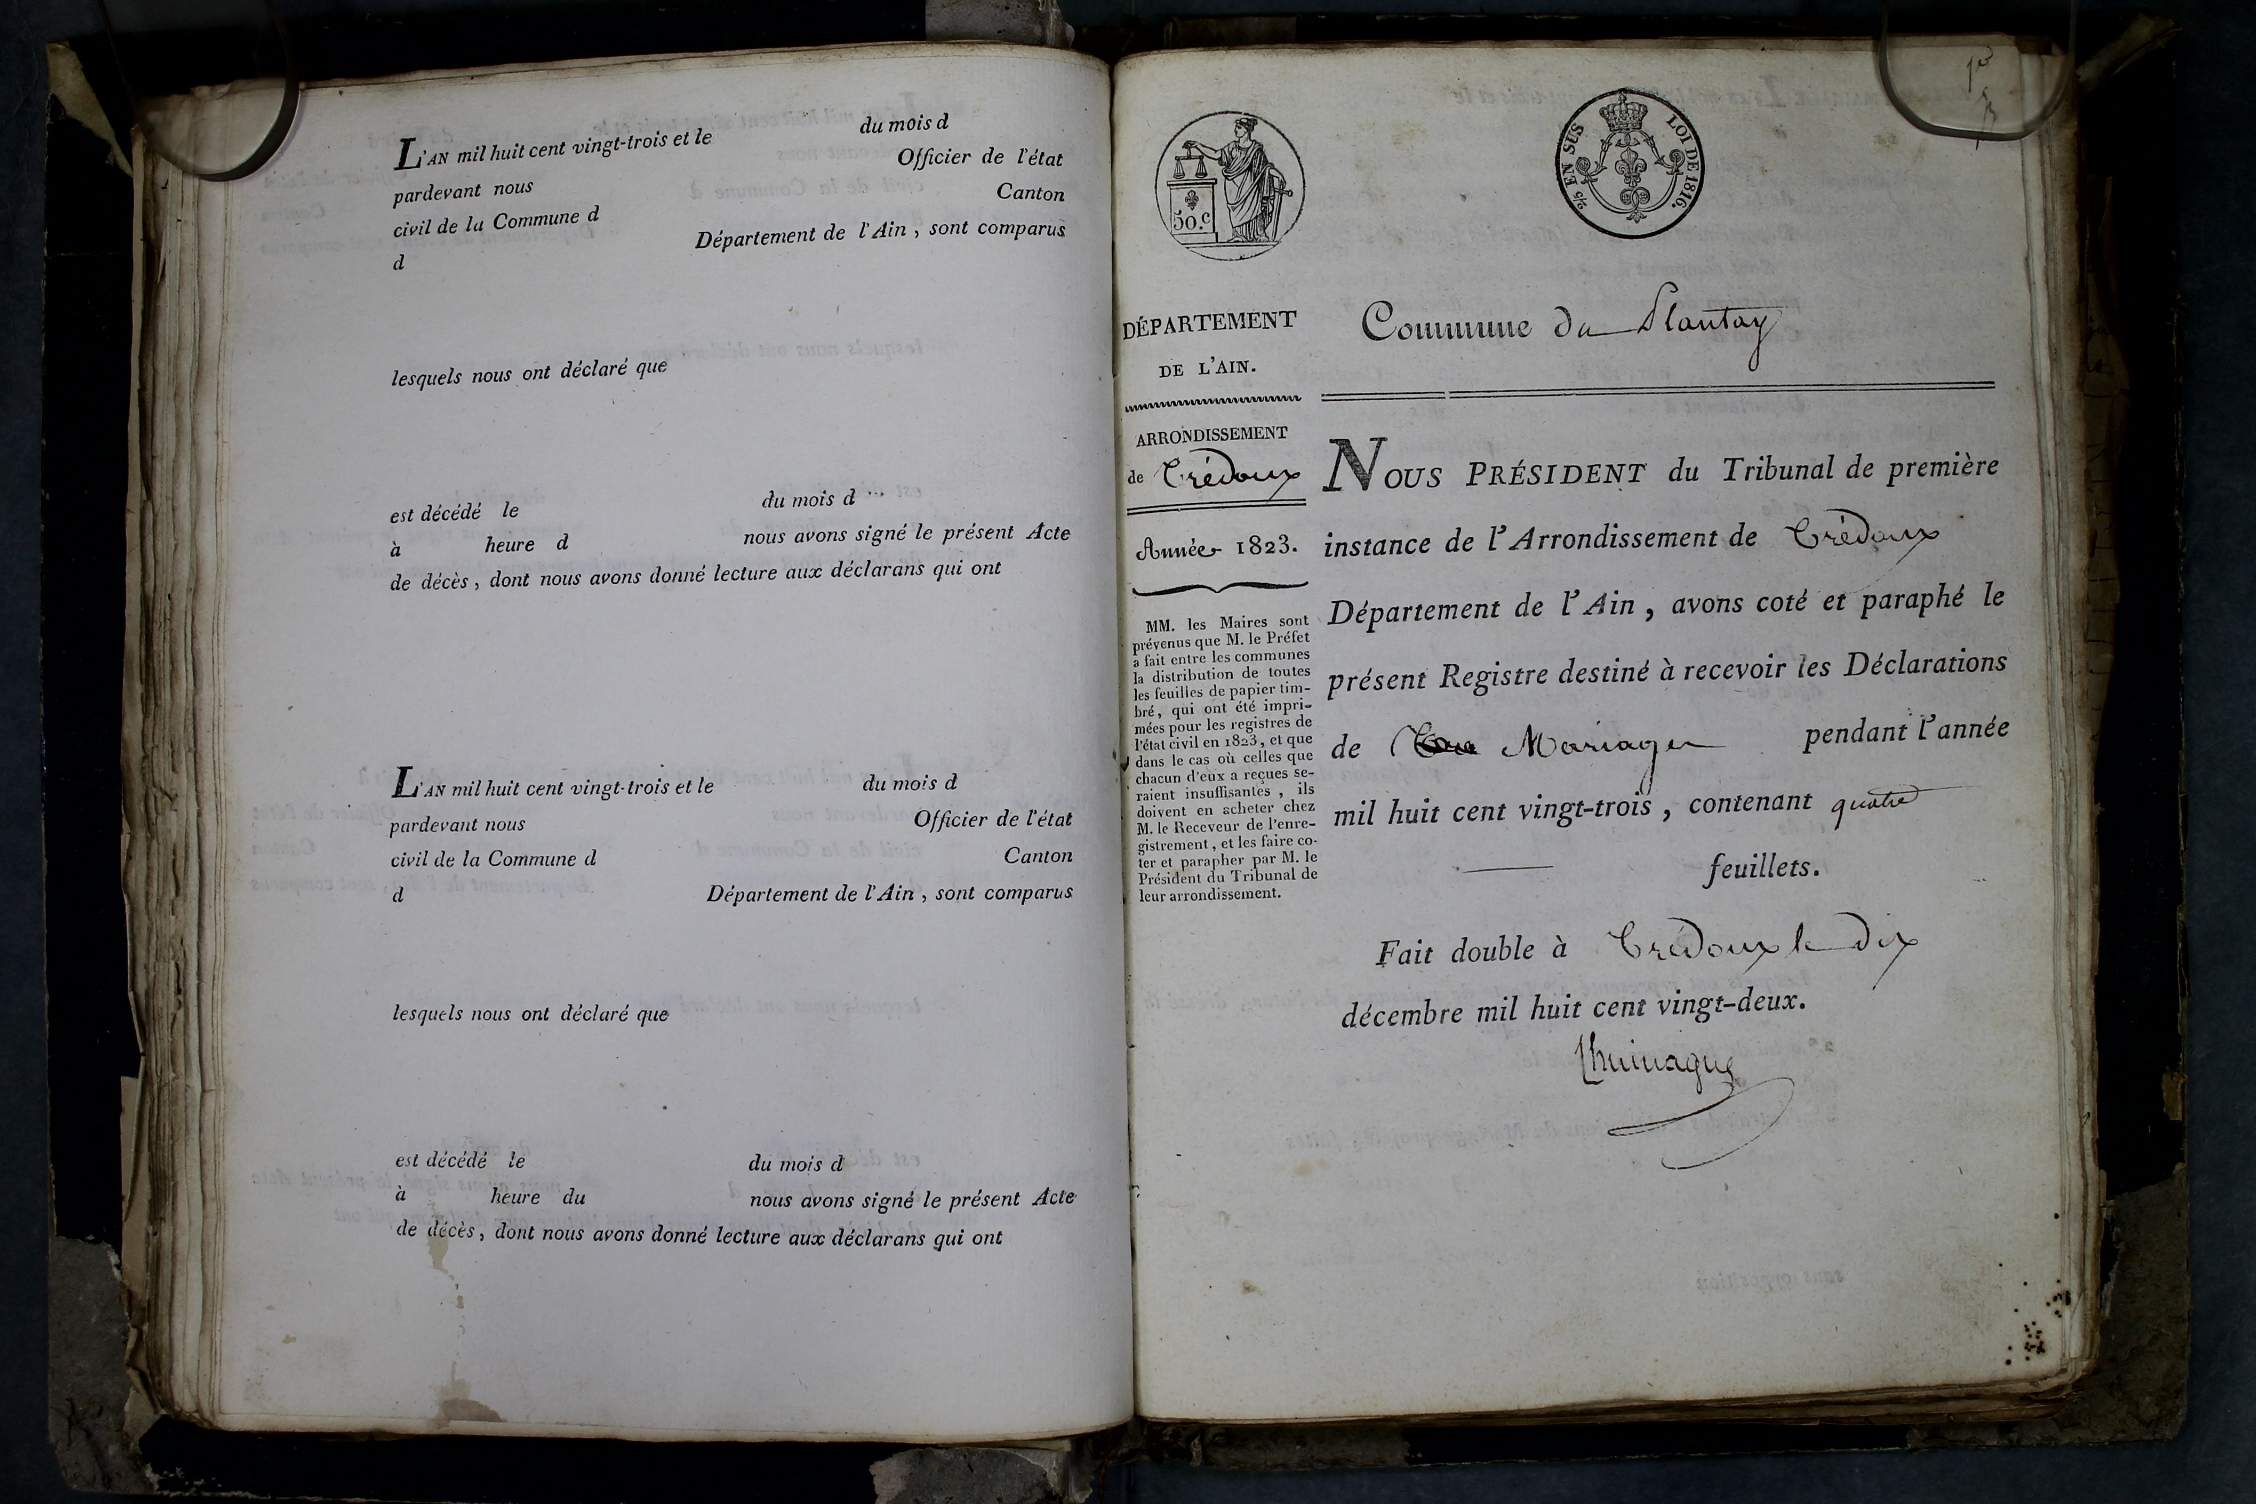 L'AN mil huit cent vingt-trois et le du mois d
pardevant nous Officier de l'état
civil de la Commune d Canton
d Département de l'Ain , sont comparus
lesquels nous ont déclaré que
est décédé le du mois d ...
à heure d nous avons signé le présent Acte
de décès , dont nous avons donné lecture aux déclarans qui ont
L'AN mil huit cent vingt-trois et le du mois d
pardevant nous Officier de l'état
civil de la Commune d Canton
d Département de l'Ain , sont comparus
lesquels nous ont déclaré que
est décédé le du mois d
à heure du nous avons signé le présent Acte
de décès , dont nous avons donné lecture aux déclarans qui ont
50.c
2/5 EN SUS LOI DE 1816.
DÉPARTEMENT
DE L'AIN.
ARRONDISSEMENT
de Trédoux
Année 1823.
MM. les Maires sont
prévenus que M. le Préfet
a fait entre les communes
la distribution de toutes
les feuilles de papier tim-
bré, qui ont été impri-
mées pour les registres de
l'état civil en 1823, et que
dans le cas où celles que
chacun d'eux a reçues se-
raient insuffisantes , ils
doivent en acheter chez
M. le Receveur de l'enre-
gistrement , et les faire co-
ter et parapher par M. le
Président du Tribunal de
leur arrondissement.
Commune du Plantay
NOUS PRÉSIDENT du Tribunal de première
instance de l'Arrondissement de Trédoux
Département de l'Ain , avons coté et paraphé le
présent Registre destiné à recevoir les Déclarations
de Mariages pendant l'année
mil huit cent vingt-trois , contenant quatre
feuillets.
Fait double à Trédoux le dix
décembre mil huit cent vingt-deux.